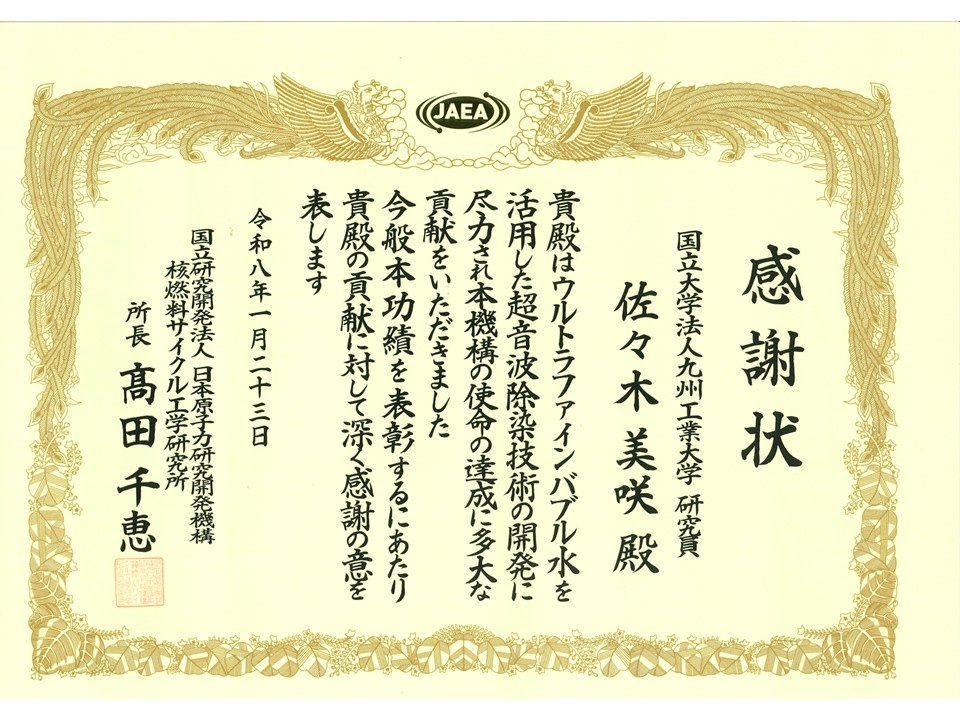 JAEA
感謝状
国立大学法人九州工業大学 研究員
佐々木 美咲 殿
貴殿はウルトラファインバブル水を
活用した超音波除染技術の開発に
尽力され本機構の使命の達成に多大な
貢献をいただきました
今般本功績を表彰するにあたり
貴殿の貢献に対して深く感謝の意を
表します
令和八年一月二十三日
国立研究開発法人 日本原子力研究開発機構
核燃料サイクル工学研究所
所長 髙田 千恵